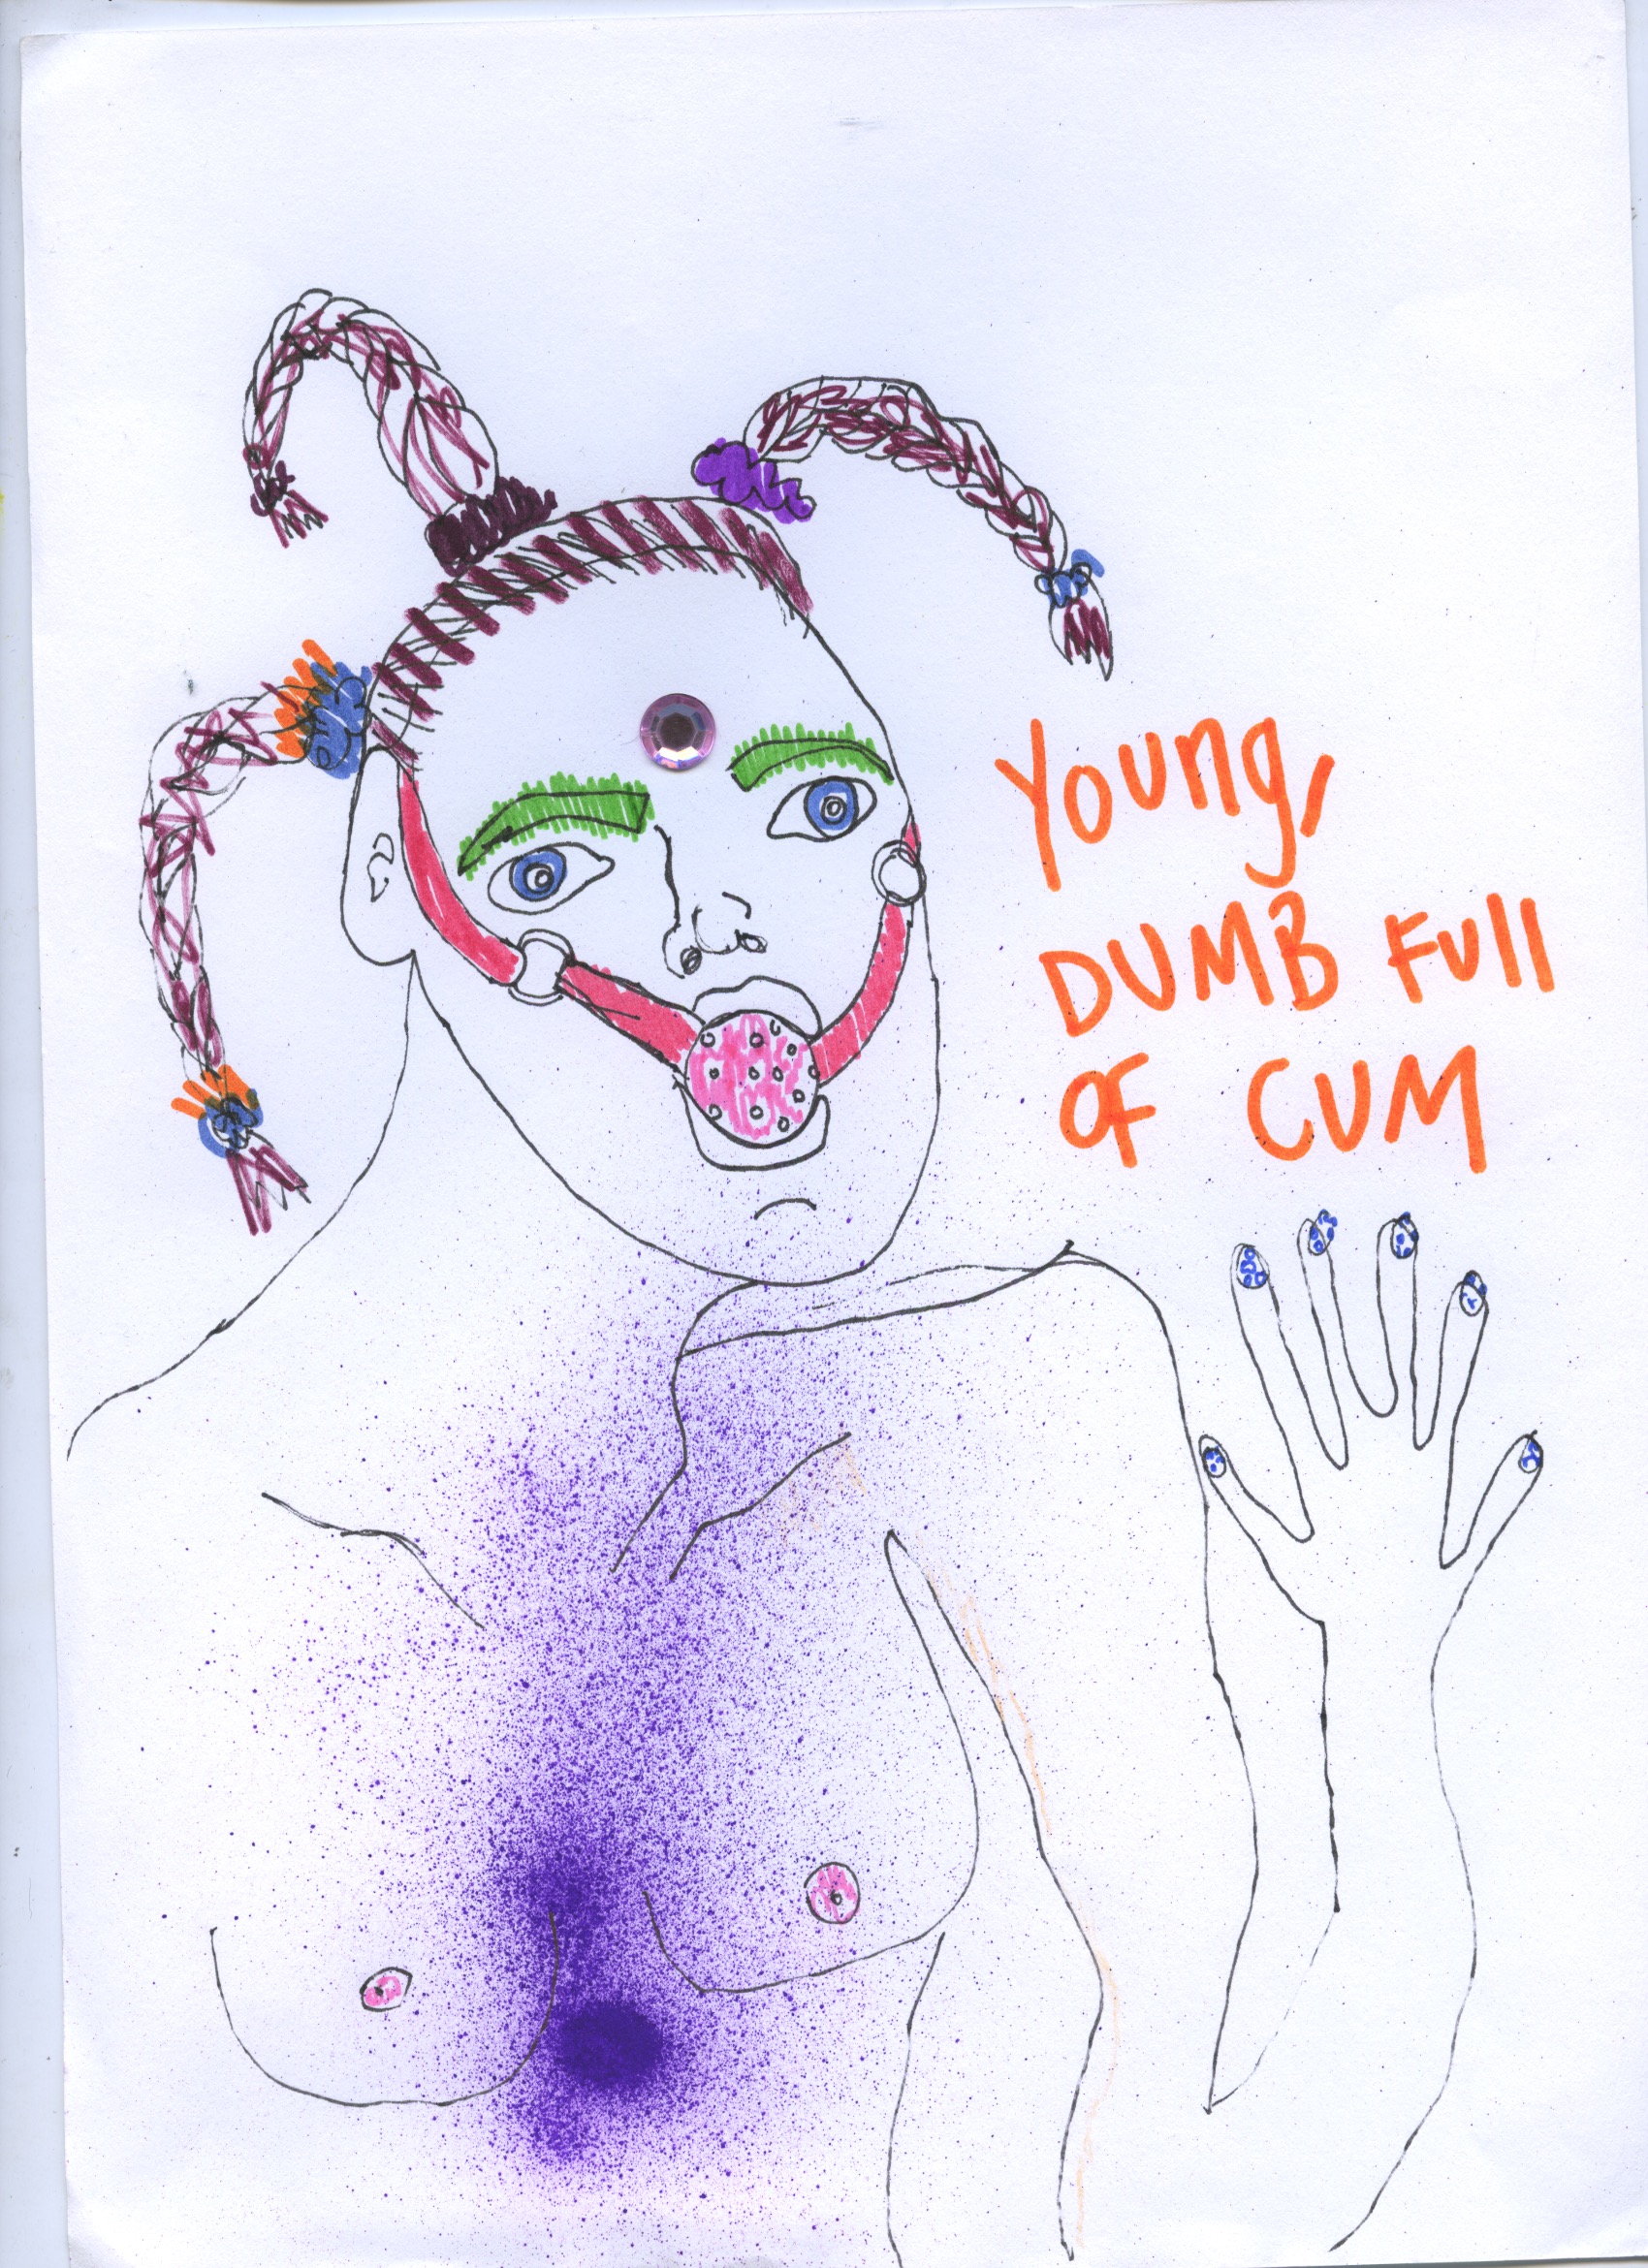 Young,
DUMB Full
OF CUM